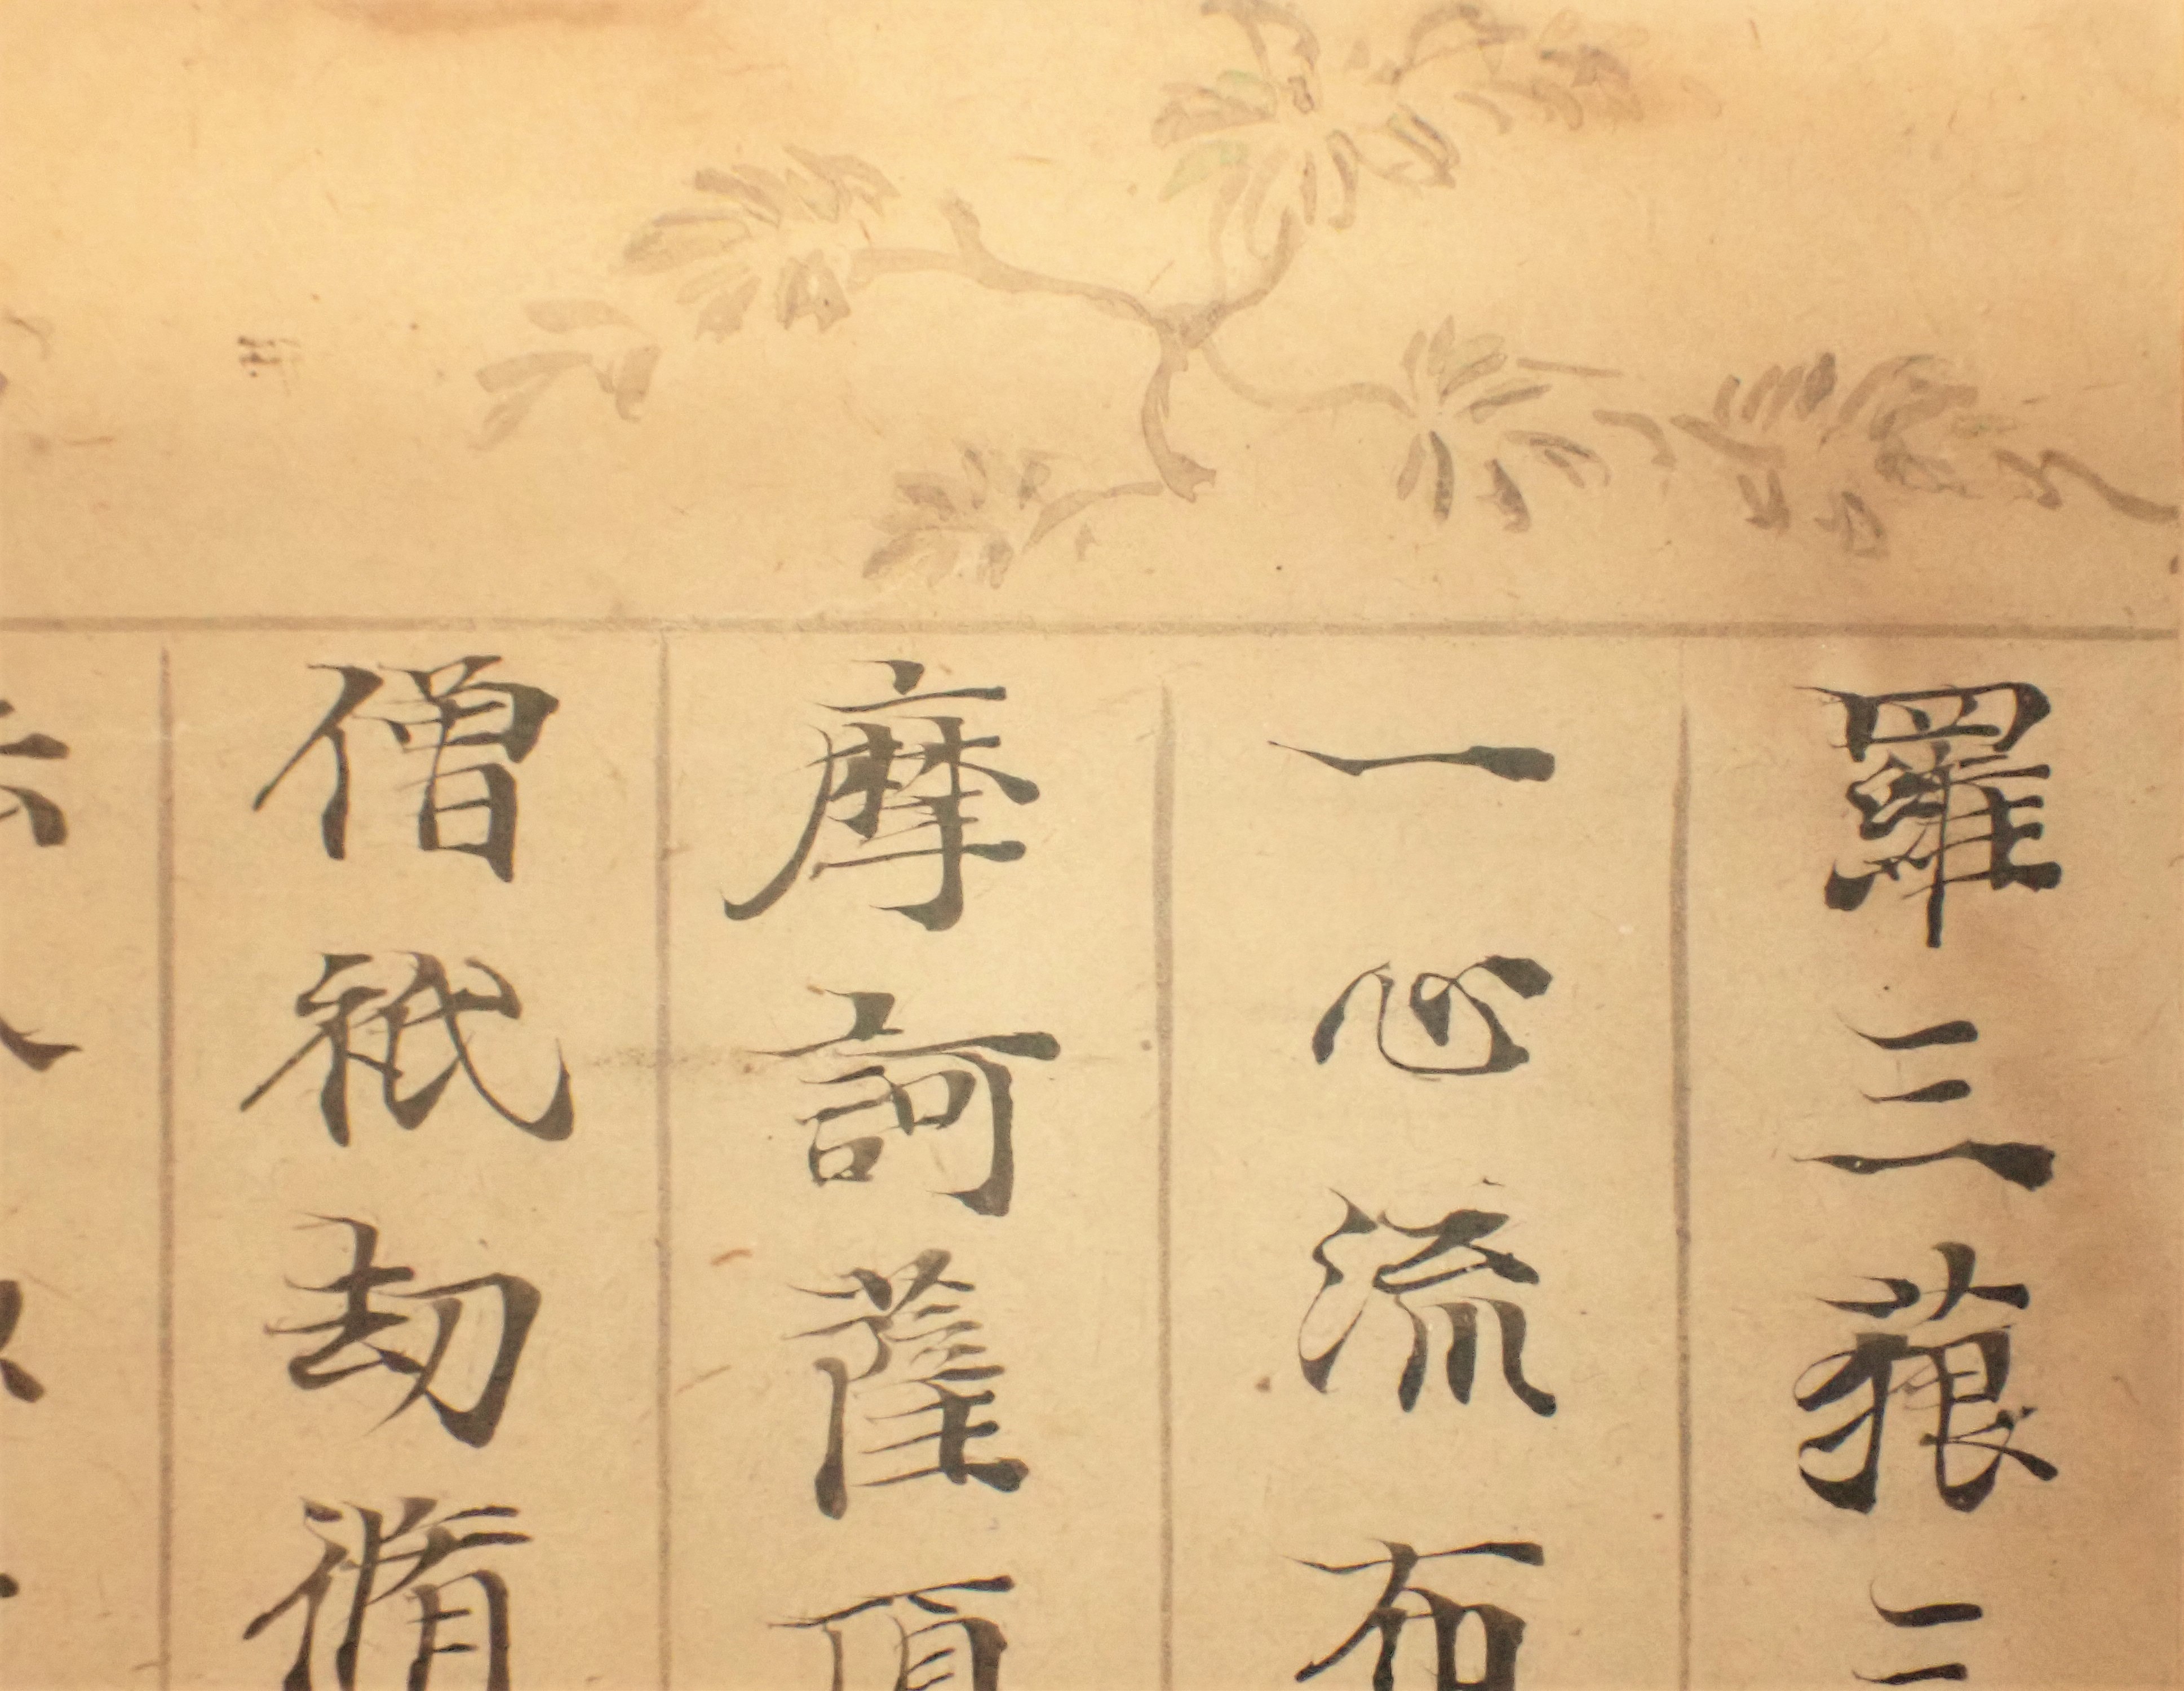 羅三藐三
一心流布
摩訶薩頂
僧祇劫脩